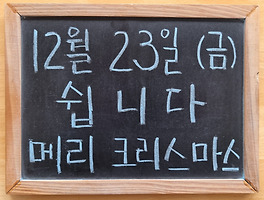 12월 23일 (금)
쉽니다
메리 크리스마스